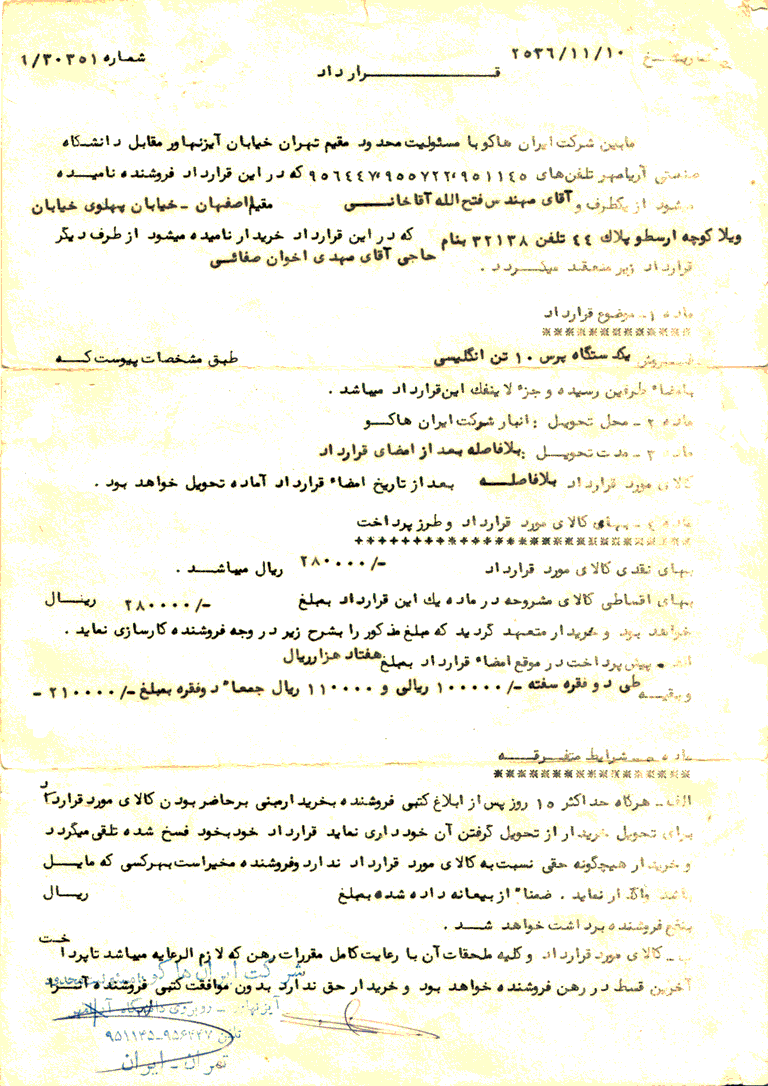 شماره ۶/۳۰۳۵۱
۲۵۳۶/۱۱/۱۰
قـــــرارداد
مابین شرکت ایران هاکو با مسئولیت محدود مقیم تهران خیابان آیزنهاور مقابل دانشگاه
صنعتی آریامهر تلفن‌های ۹۵۱۱۴۵،۹۵۵۷۲۲،۹۵۶۴۴۷ که در این قرارداد فروشنده نامیده
میشود از یکطرف و آقای مهندس فتح الله آقاخانی مقیم اصفهان - خیابان پهلوی خیابان
ویلا کوچه ارسطو پلاك ۴۴ تلفن ۳۲۱۳۸ بنام که در این قرارداد خریدار نامیده میشود از طرف دیگر
حاجی آقای مهدی اخوان صفائی
قرارداد زیر منعقد میگردد .
ماده ۱ - موضوع قرارداد
فروش یکدستگاه پرس ۱۰ تن انگلیسی طبق مشخصات پیوست که
بامضاء طرفین رسیده و جزء لاینفك این قرارداد میباشد .
ماده ۲ - محل تحویل : انبار شرکت ایران هاکو
ماده ۳ - مدت تحویل : بلافاصله بعد از امضای قرارداد
کالای مورد قرارداد بلافاصله بعد از تاریخ امضاء قرارداد آماده تحویل خواهد بود .
ماده ۴ - بهای کالای مورد قرارداد و طرز پرداخت
بهای نقدی کالای مورد قرارداد ۲۸۰۰۰۰/- ریال میباشد .
بهای اقساطی کالای مشروحه در ماده یك این قرارداد بمبلغ ۲۸۰۰۰۰/- ریال
خواهد بود و خریدار متعهد گردید که مبلغ مذکور را بشرح زیر در وجه فروشنده کارسازی نماید .
الف - پیش پرداخت در موقع امضاء قرارداد بمبلغ هفتاد هزار ریال
و بقیه طی دو فقره سفته ۱۰۰۰۰۰/- ریالی و ۱۱۰۰۰۰ ریال جمعاً دو فقره بمبلغ ۲۱۰۰۰۰/-
ماده - شرایط متفرقه
الف - هرگاه حداکثر ۱۵ روز پس از ابلاغ کتبی فروشنده بخریدار مبنی بر حاضر بودن کالای مورد قرارداد
برای تحویل خریدار از تحویل گرفتن آن خودداری نماید قرارداد خودبخود فسخ شده تلقی میگردد
و خریدار هیچگونه حقی نسبت به کالای مورد قرارداد ندارد و فروشنده مخیر است بهر کسی که مایل
باشد واگذار نماید . ضمناً از بیعانه داده شده بمبلغ ریال
بنفع فروشنده برداشت خواهد شد .
ب - کالای مورد قرارداد و کلیه ملحقات آن با رعایت کامل مقررات رهن که لازم الرعایه میباشد تا پرداخت
آخرین قسط در رهن فروشنده خواهد بود و خریدار حق ندارد بدون موافقت کتبی فروشنده آنرا
شرکت ایران هاکو با مسئولیت محدود
آیزنهاور - روبروی دانشگاه آریامهر
تلفن ۹۵۶۴۴۷-۹۵۱۱۴۵
تهران - ایران